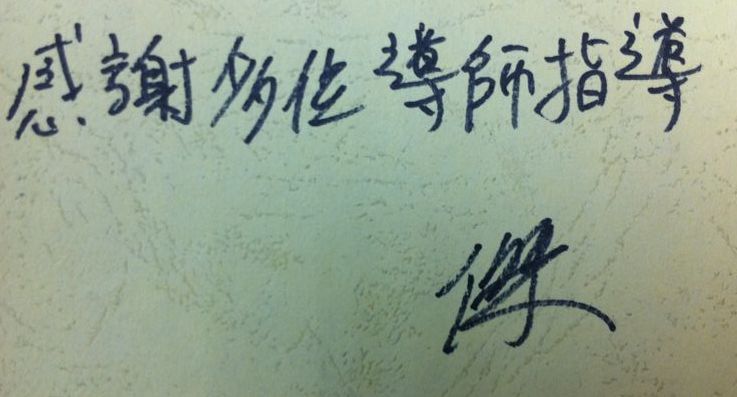 感謝多位導師指導
傑